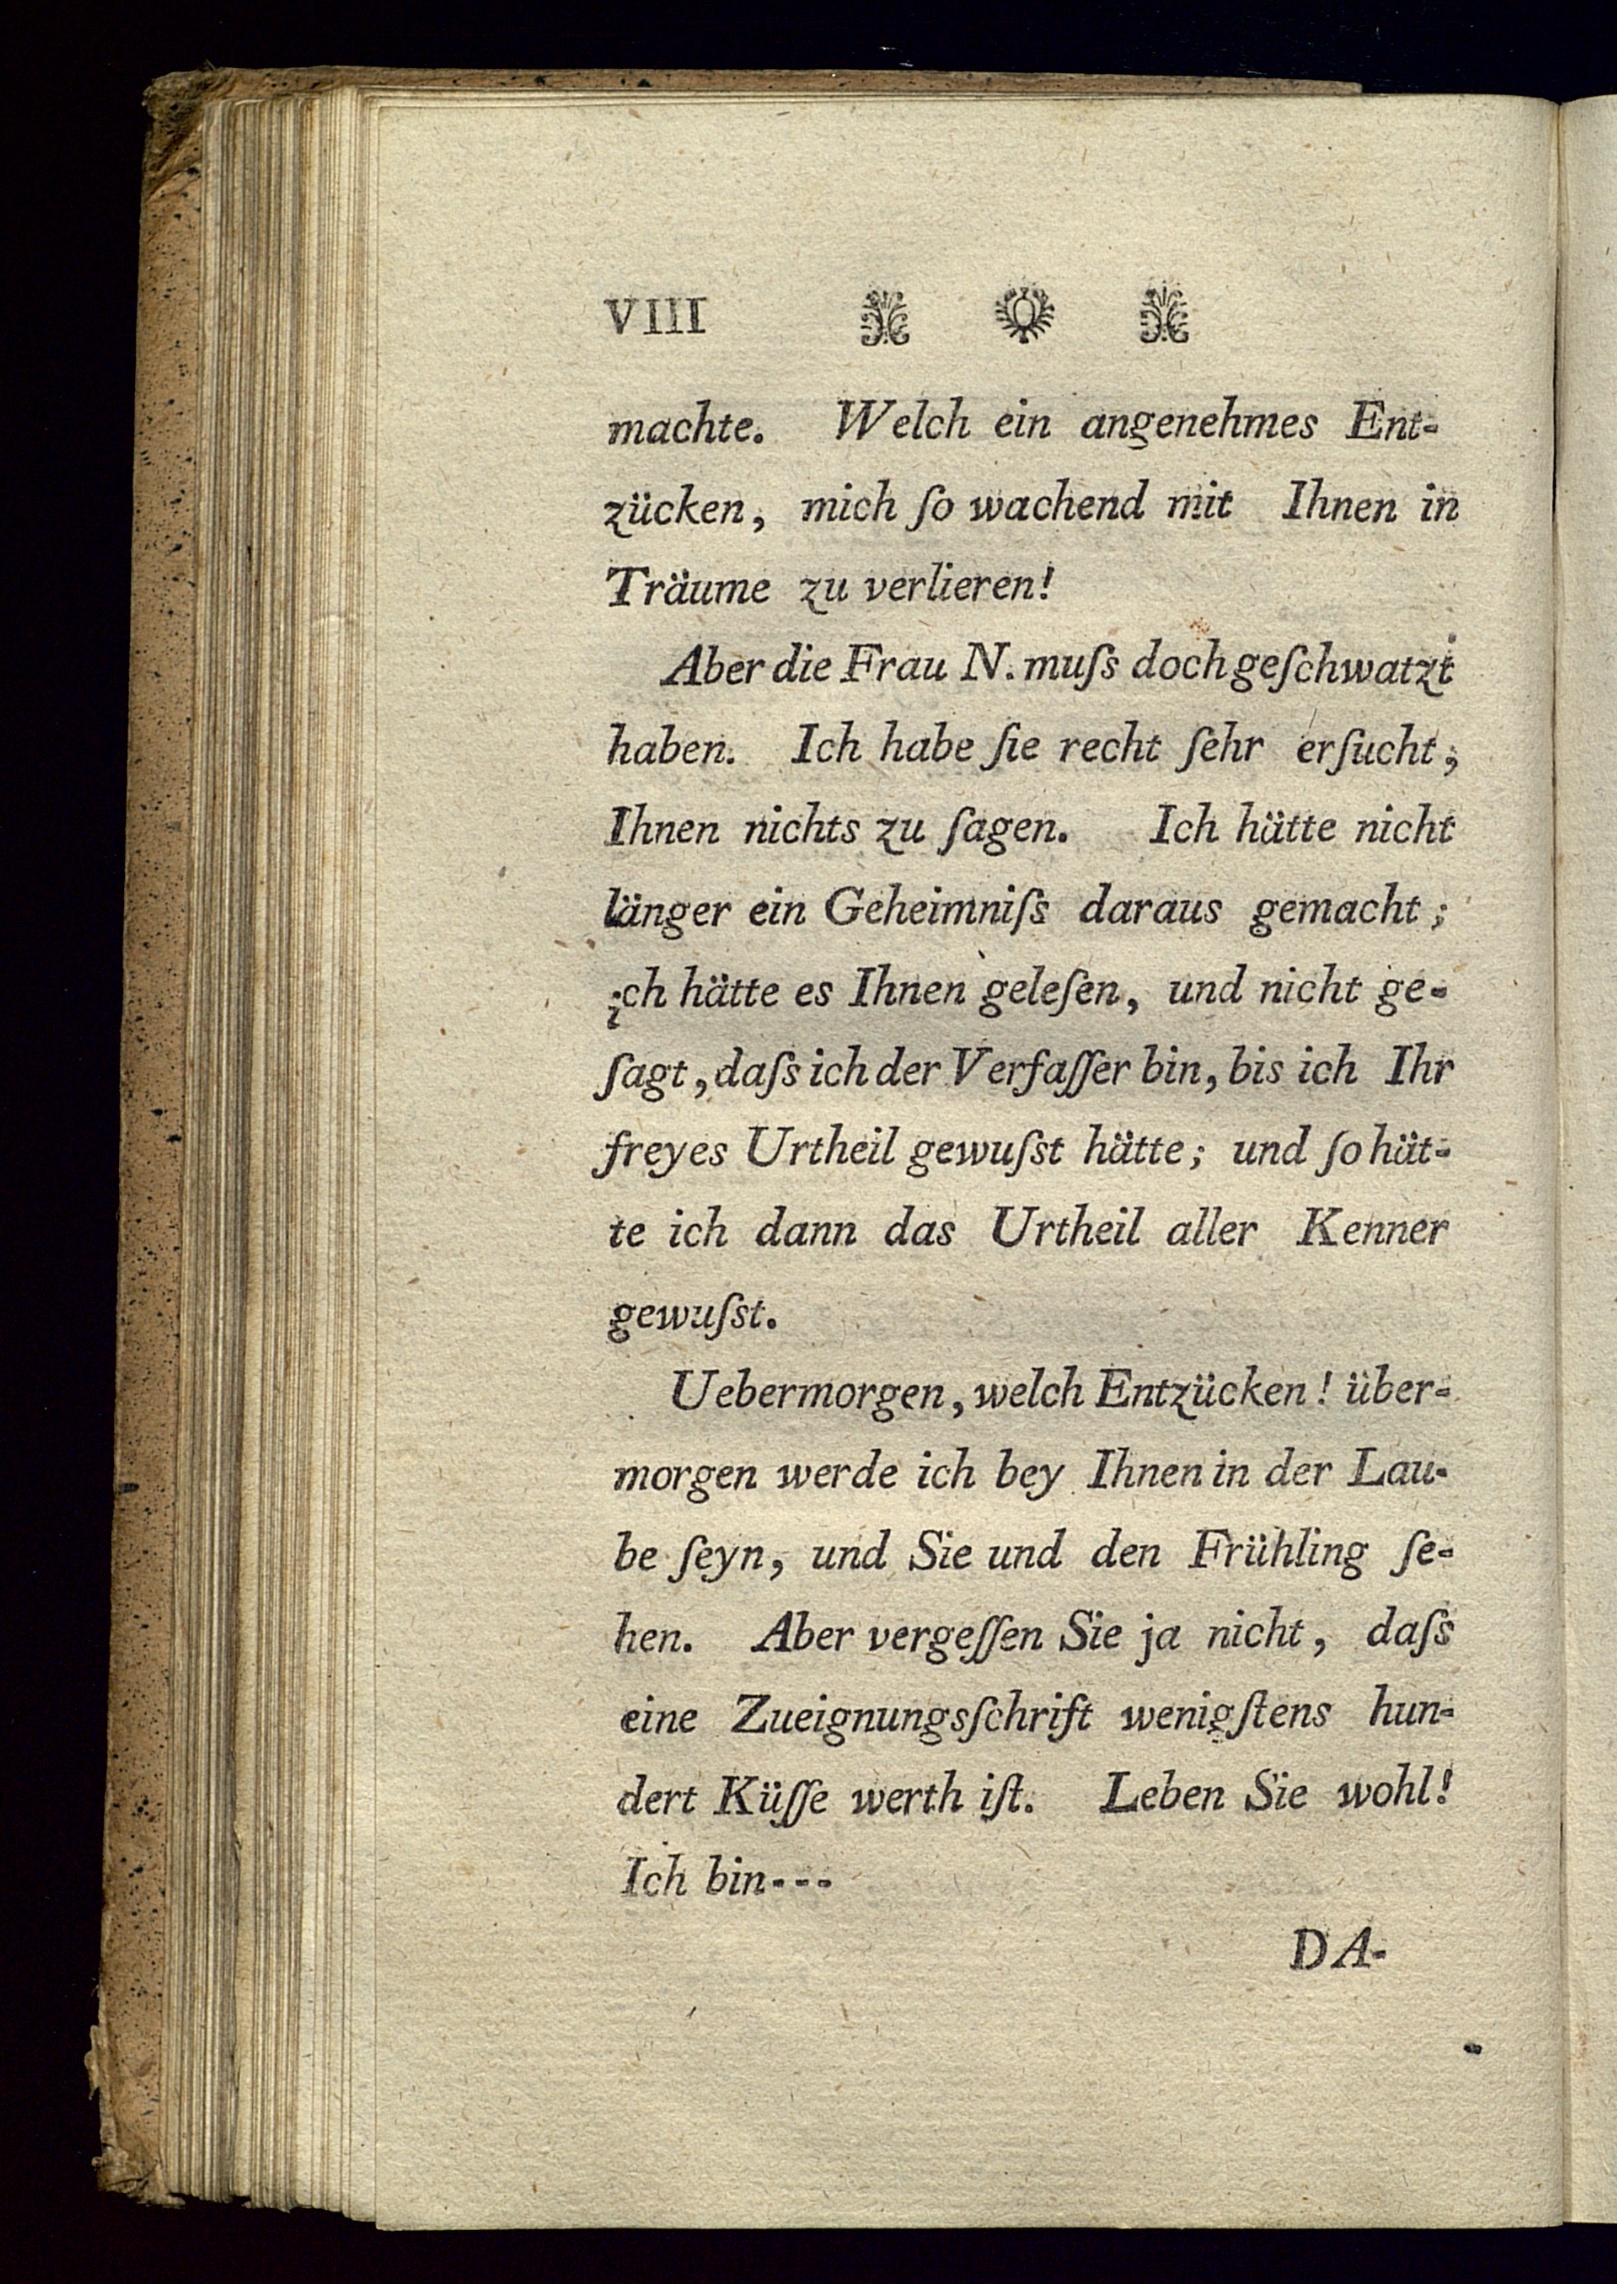 VIII
machte. Welch ein angenehmes Ent-
zücken, mich ſo wachend mit Ihnen in
Träume zu verlieren!
Aber die Frau N. muſs doch geſchwatzt
haben. Ich habe ſie recht ſehr erſucht,
Ihnen nichts zu ſagen. Ich hätte nicht
länger ein Geheimniſs daraus gemacht;
ich hätte es Ihnen geleſen, und nicht ge-
ſagt, daſs ich der Verfaſſer bin, bis ich Ihr
freyes Urtheil gewuſst hätte; und ſo hät-
te ich dann das Urtheil aller Kenner
gewuſst.
Uebermorgen, welch Entzücken! über-
morgen werde ich bey Ihnen in der Lau-
be ſeyn, und Sie und den Frühling ſe-
hen. Aber vergeſſen Sie ja nicht, daſs
eine Zueignungsſchrift wenigſtens hun-
dert Küſſe werth iſt. Leben Sie wohl!
Ich bin---
DA-